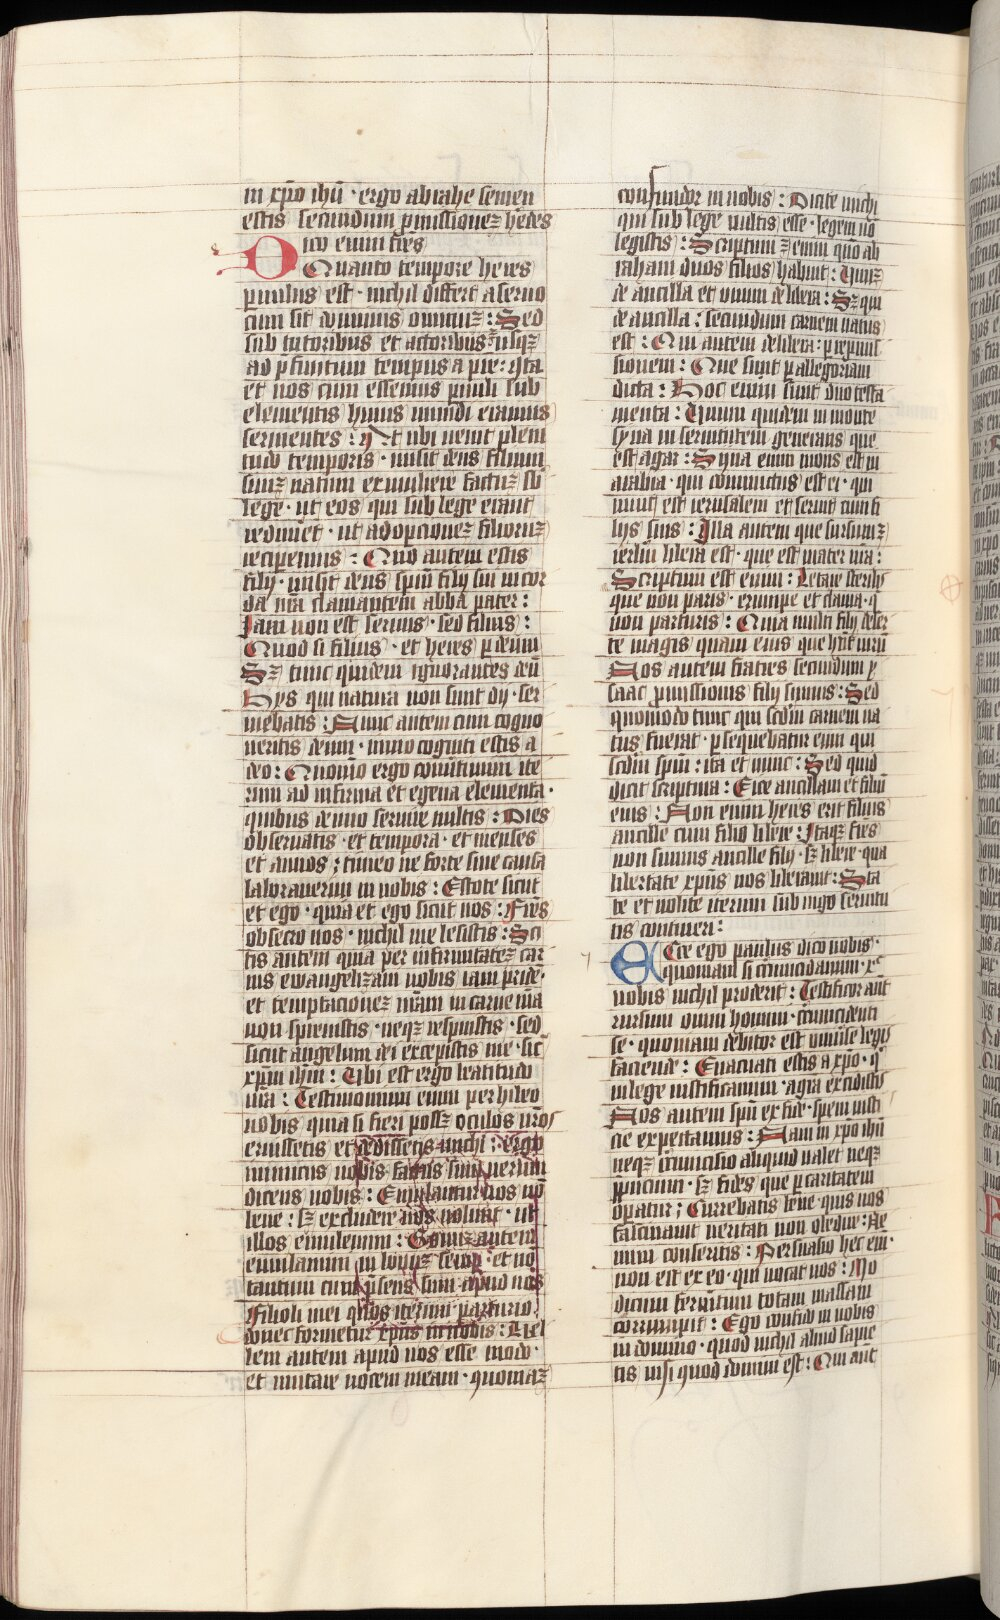 in xpo ihu · ergo abrahe semen
estis secundum pmissionez hedes
Dico enim fres
Quanto tempore heres
pvulus est · nichil differt a seruo
cum sit dominus omniuz : Sed
sub tutoribus et actoribus usqz
ad pfinitum tempus a pre : Ita
et nos cum essemus pvuli sub
elementis huius mundi eramus
seruientes : At ubi uenit pleni
tudo temporis · misit deus filium
suuz natum ex muliere factuz sb
lege · ut eos qui sub lege erant
redimet · ut adopcionez filioruz
recipemus : Qm autem estis
filij · misit deus spm filij sui in cor
da nra clamantem abba pater :
Iam non est seruus · sed filius :
Quod si filius · et heres p deum
Sz tunc quidem ignorantes deu
hijs qui natura non sunt dij · ser
uiebatis : Nunc autem cum cogno
ueritis deum · immo cogniti estis a
deo : Quomo ergo conutimini ite
rum ad infirma et egena elementa ·
quibus denuo seruire uultis : Dies
obseruatis · et tempora · et menses
et annos ; timeo ne forte sine causa
laborauerim in nobis : Estote sicut
et ego · quia et ego sicut uos : fres
obsecro uos · nichil me lesistis : Sci
tis autem quia per infirmitatez car
nis ewangelizam uobis iam pride ·
et temptacionez uram in carne mea
non spreuistis · neqz respuistis · sed
sicut angelum dei excepistis me · sic
xpm ihm : Ubi est ergo beatitudo
ura : Testimonium enim perhibeo
uobis quia si fieri possz oculos uros
eruissetis et dedissetis michi : ergo
inimicus uobis factus sum uerum
dicens uobis : Emulantur uos no
bene : sz excludere uos uolunt · ut
illos emulemini : Bonuz autem
emulamini in bonuz semp · et no
tantum cum psens sum apud uos
Filioli mei quos iterum parturio
donec formetur xpus in uobis : Uel
lem autem apud uos esse modo ·
et mutare uocem meam · quoniaz
confundor in uobis : Dicite michi
qui sub lege uultis esse · legem no
legistis : Scriptum z enim qm ab
raham duos filios habuit : Unuz
de ancilla et unum de libera : Sz qui
de ancilla : secundum carnem natus
est : Qui autem de libera : p repmis
sionem : Que sunt p allegoriam
dicta : Hec enim sunt duo testa
menta : Unum quidem in monte
syna in seruitutem generans que
est agar : Syna enim mons est in
arabia · qui coniunctus est ei · qui
nunc est ierusalem et seruit cum fi
lijs suis : Illa autem que sursum z
ierlm libera est · que est mater nra :
Scriptum est enim : Letare sterilis
que non paris · erumpe et clama · q
non parturis : Quia multi filij deser
te magis quam eius que hnt uiru
Nos autem fratres secundum y
saac pmissionis filij sumus : Sed
quomodo tunc qui scdm carnem na
tus fuerat · psequebatur eum qui
scdm spm : ita et nunc : Sed quid
dicit scriptura : Eice ancillam et filiu
eius : Non enim heres erit filius
ancille cum filio libere : Itaqz fres
non sumus ancille filij · sz libere · qua
libertate xpus nos liberauit : Sta
te et nolite iterum sub iugo seruitu
tis contineri :
Ecce ego paulus dico uobis ·
quoniam si circumcidamini · xc
uobis nichil proderit : Testificor aut
rursum omni homini · circumcidenti
se · quoniam debitor est uniuse legis
faciende : Euacuati estis a xpo · q
in lege iustificamini · a gra excidistis
Nos autem spu ex fide · spem iusti
cie expectamus : Nam in xpo ihu
neqz circumcisio aliquid ualet neqz
ppucium · sz fides que p caritatem
operatur ; Currebatis bene · quis uos
fascinauit ueritati non obedire : Ne
mini consenseritis : Persuasio hec eni
non est ex eo · qui uocat uos : Mo
dicum fermentum totam massam
corrumpit : Ego confido in uobis
in domino · quod nichil aliud sapie
tis nisi quod domini est : Qui aut